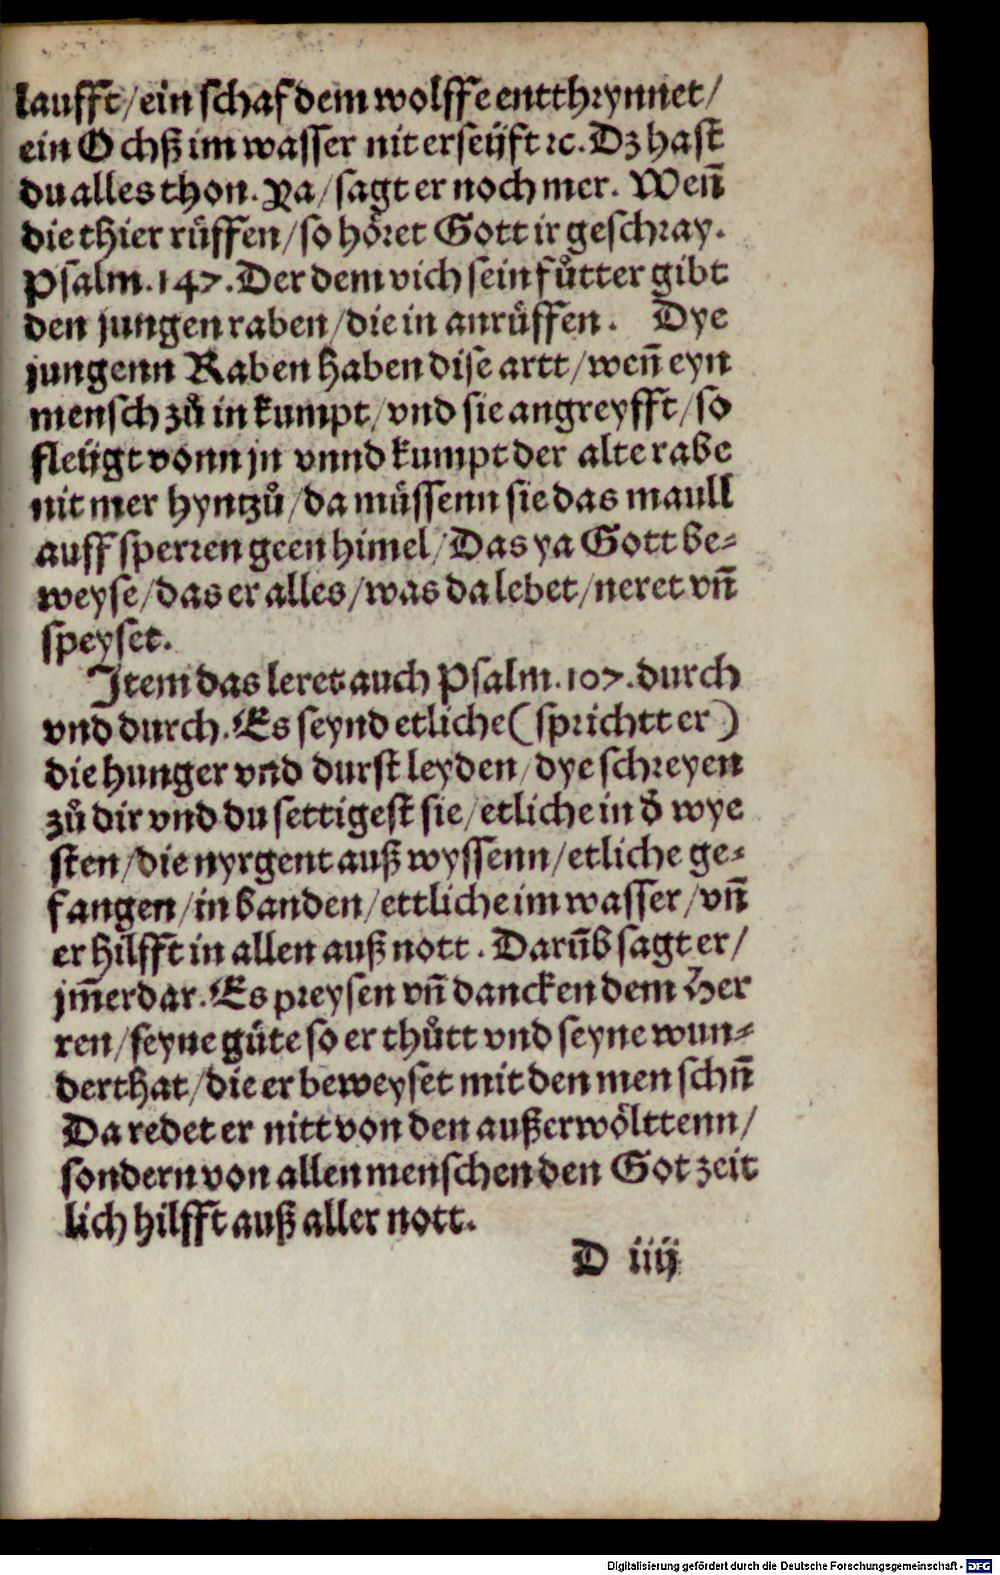 laufft/ein schaf dem wolffe entthrynnet/
ein Ochß im wasser nit erseüft ꝛc. Dz hast
du alles thon. Ya/sagt er noch mer. Weñ
die thier rüffen/so höret Gott ir geschray.
Psalm.147.Der dem vich sein fůtter gibt
den jungen raben/die in anrüffen. Dye
jungenn Raben haben dise artt/weñ eyn
mensch zů in kumpt/vnd sie angreyfft/so
fleügt vonn jn vnnd kumpt der alte rabe
nit mer hyntzů/da müssenn sie das maull
auff sperren geen himel/Das ya Gott be⸗
weyse/das er alles/was da lebet/neret vñ
speyset.
Item das leret auch Psalm.107.durch
vnd durch.Es seynd etliche(sprichtt er)
die hunger vnd durst leyden/dye schreyen
zů dir vnd du settigest sie/etliche in d̕ wye
sten/die nyrgent auß wyssenn/etliche ge⸗
fangen/in banden/ettliche im wasser/vñ
er hilfft in allen auß nott. Darũb sagt er/
jm̃erdar.Es preysen vñ dancken dem Her
ren/seyne güte so er thůtt vnd seyne wun⸗
derthat/die er beweyset mit den menschñ
Da redet er nitt von den außerwölttenn/
sondern von allen menschen den Got zeit
lich hilfft auß aller nott.
D iiij
Digitalisierung gefördert durch die Deutsche Forschungsgemeinschaft - DFG